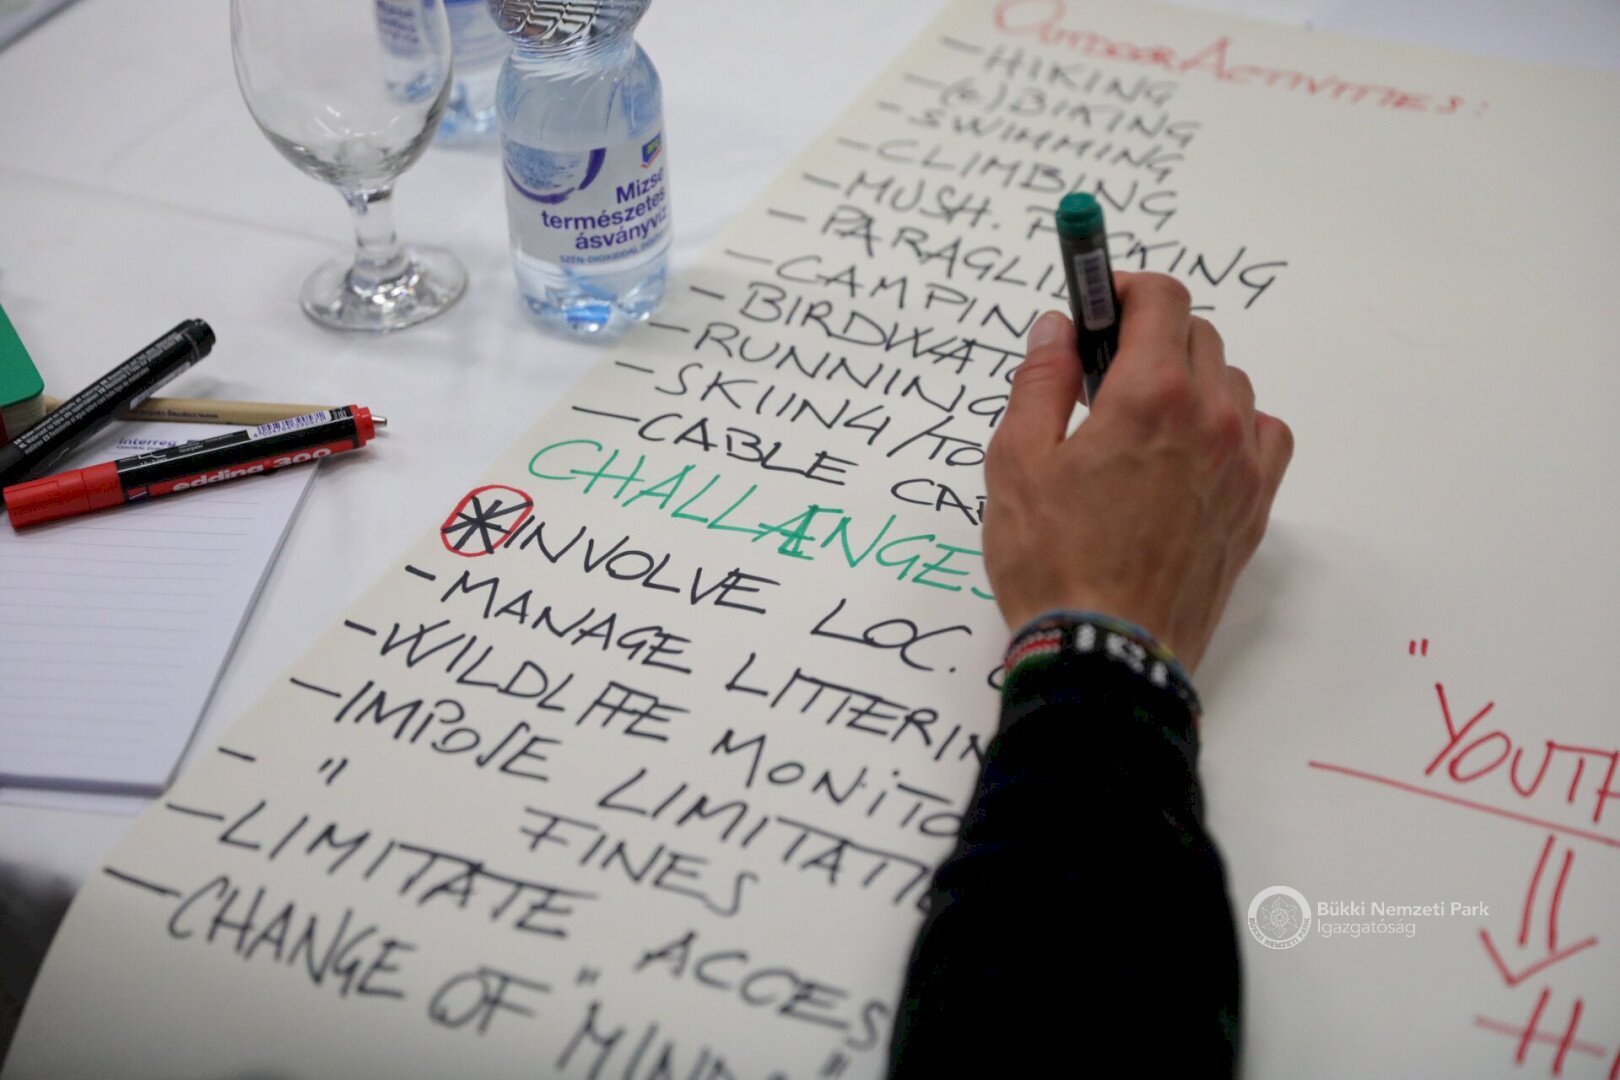 OUTDOOR ACTIVITIES:
- HIKING
- (e)BIKING
- SWIMMING
- CLIMBING
- MUSH. PICKING
- PARAGLIDING
- CAMPING
- BIRDWATC
- RUNNING
- SKIING/TO
- CABLE CAR
CHALLÆNGES
* INVOLVE LOC.
- MANAGE LITTERIN
- WILDLIFE MONITO
- IMPOSE LIMITATI
- " FINES
- LIMITATE ACCES
- CHANGE OF "MIND"
"YOUTH
Mizse
természetes
ásványvíz
SZÉN-DIOXIDDAL DÚSÍ
aro
interreg
edding 300
Bükki Nemzeti Park
Igazgatóság